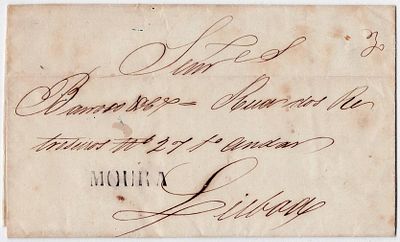 Senr S
Barros & Ca Rua dos Re
trozeiros No 27 1o Andar
MOURA
Lisboa